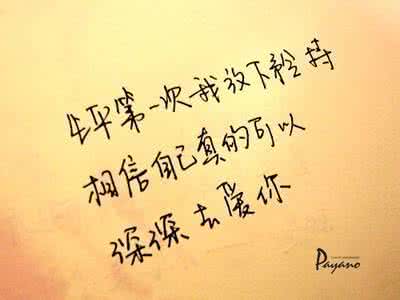 生平第一次我放下矜持
相信自己真的可以
深深去爱你
Payano